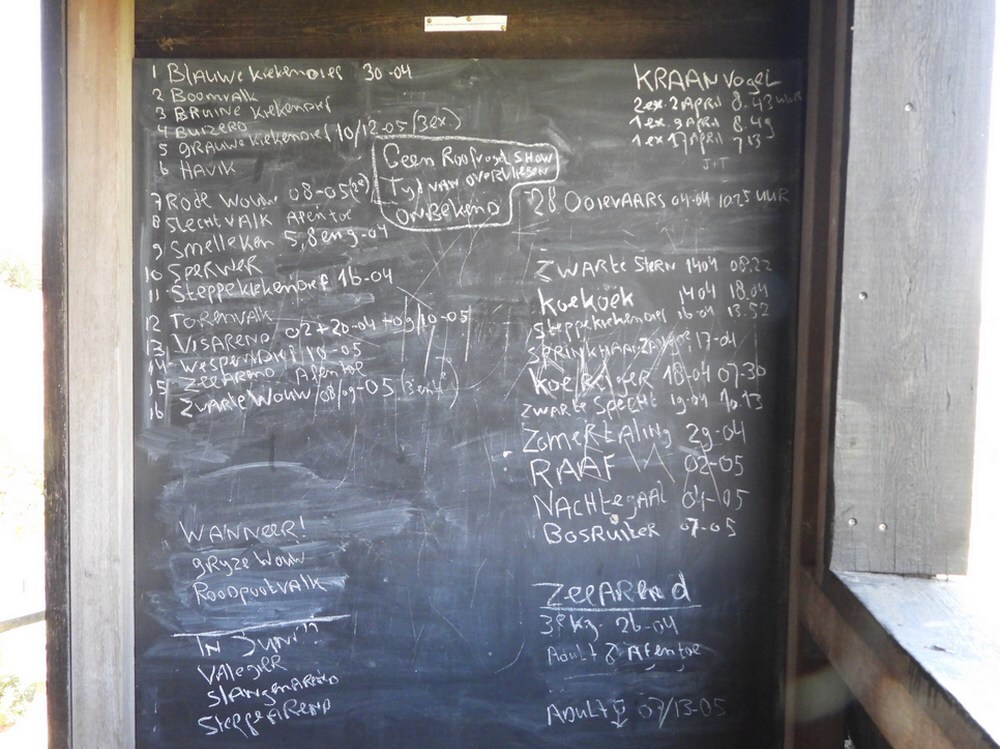 1 Blauwe kiekendief 30-04
2 Boomvalk
3 Bruine kiekendief
4 Buizerd
5 grauwe kiekendief 10/12-05 (3ex)
6 Havik
7 Rode Wouw 08-05
8 Slechtvalk Af en toe
9 Smelleken 5,8 en 9-04
10 Sperwer
11 Steppekiekendief 16-04
12 Torenvalk
13 Visarend 02+20-04 +09/10-05
14 Wespendief 10-05
15 Zeearend Af en toe
16 Zwarte Wouw 08/09-05
Geen Roofvogel SHOW
Tyd van overvliegen
onbekend
WANNEER!
gryze Wouw
Roodpootvalk
In Juni??
Valegier
Slangenarend
Steppearend
KRAANVogel
2ex. 2 April 8.43 uur
1ex. 9 April 8.49
1ex 17 April 713
J.T
28 Ooievaars 04-04 1025 uur
Zwarte Stern 1404 08.22
Koekoek 1404 18.04
Steppekiekendief 16-04 13.52
Sprinkhaanzanger 17-04
Koereiger 18-04 07-30
Zwarte Specht 19-04 10.13
Zomertaling 29-04
RAAF 02-05
Nachtegaal 04-05
Bosruiter 07-05
Zeearend
3e kj. 26-04
Adult ♂ Af en toe
Adult ♀ 07/13-05